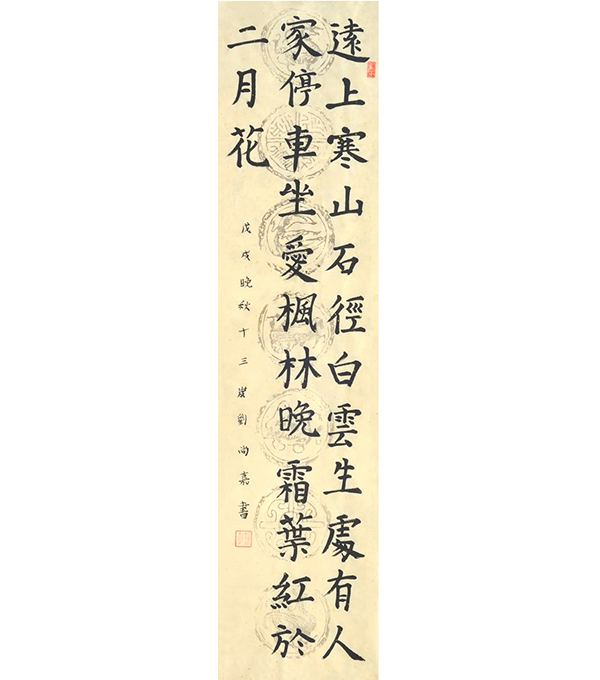 遠上寒山石徑白雲生處有人
家停車坐愛楓林晚霜葉紅於
二月花
戊戌晚秋十三歲劉尚嘉書